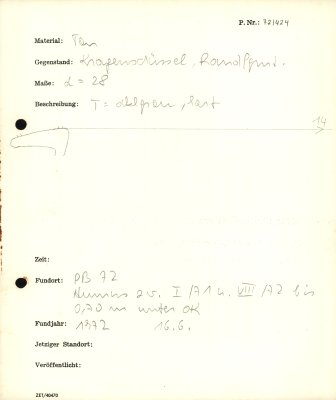 P. Nr.: 72/424
Material: Ton
Gegenstand: Kragenschüssel, Randfgmt.
Maße: d = 28
Beschreibung: T = hellgrau, hart
14
Zeit:
Fundort: PB 72
Humus zw. I /71 u. VIII /72 bis
0,70 m unter OK
Fundjahr: 1972 16.6.
Jetziger Standort:
Veröffentlicht:
ZET/40470